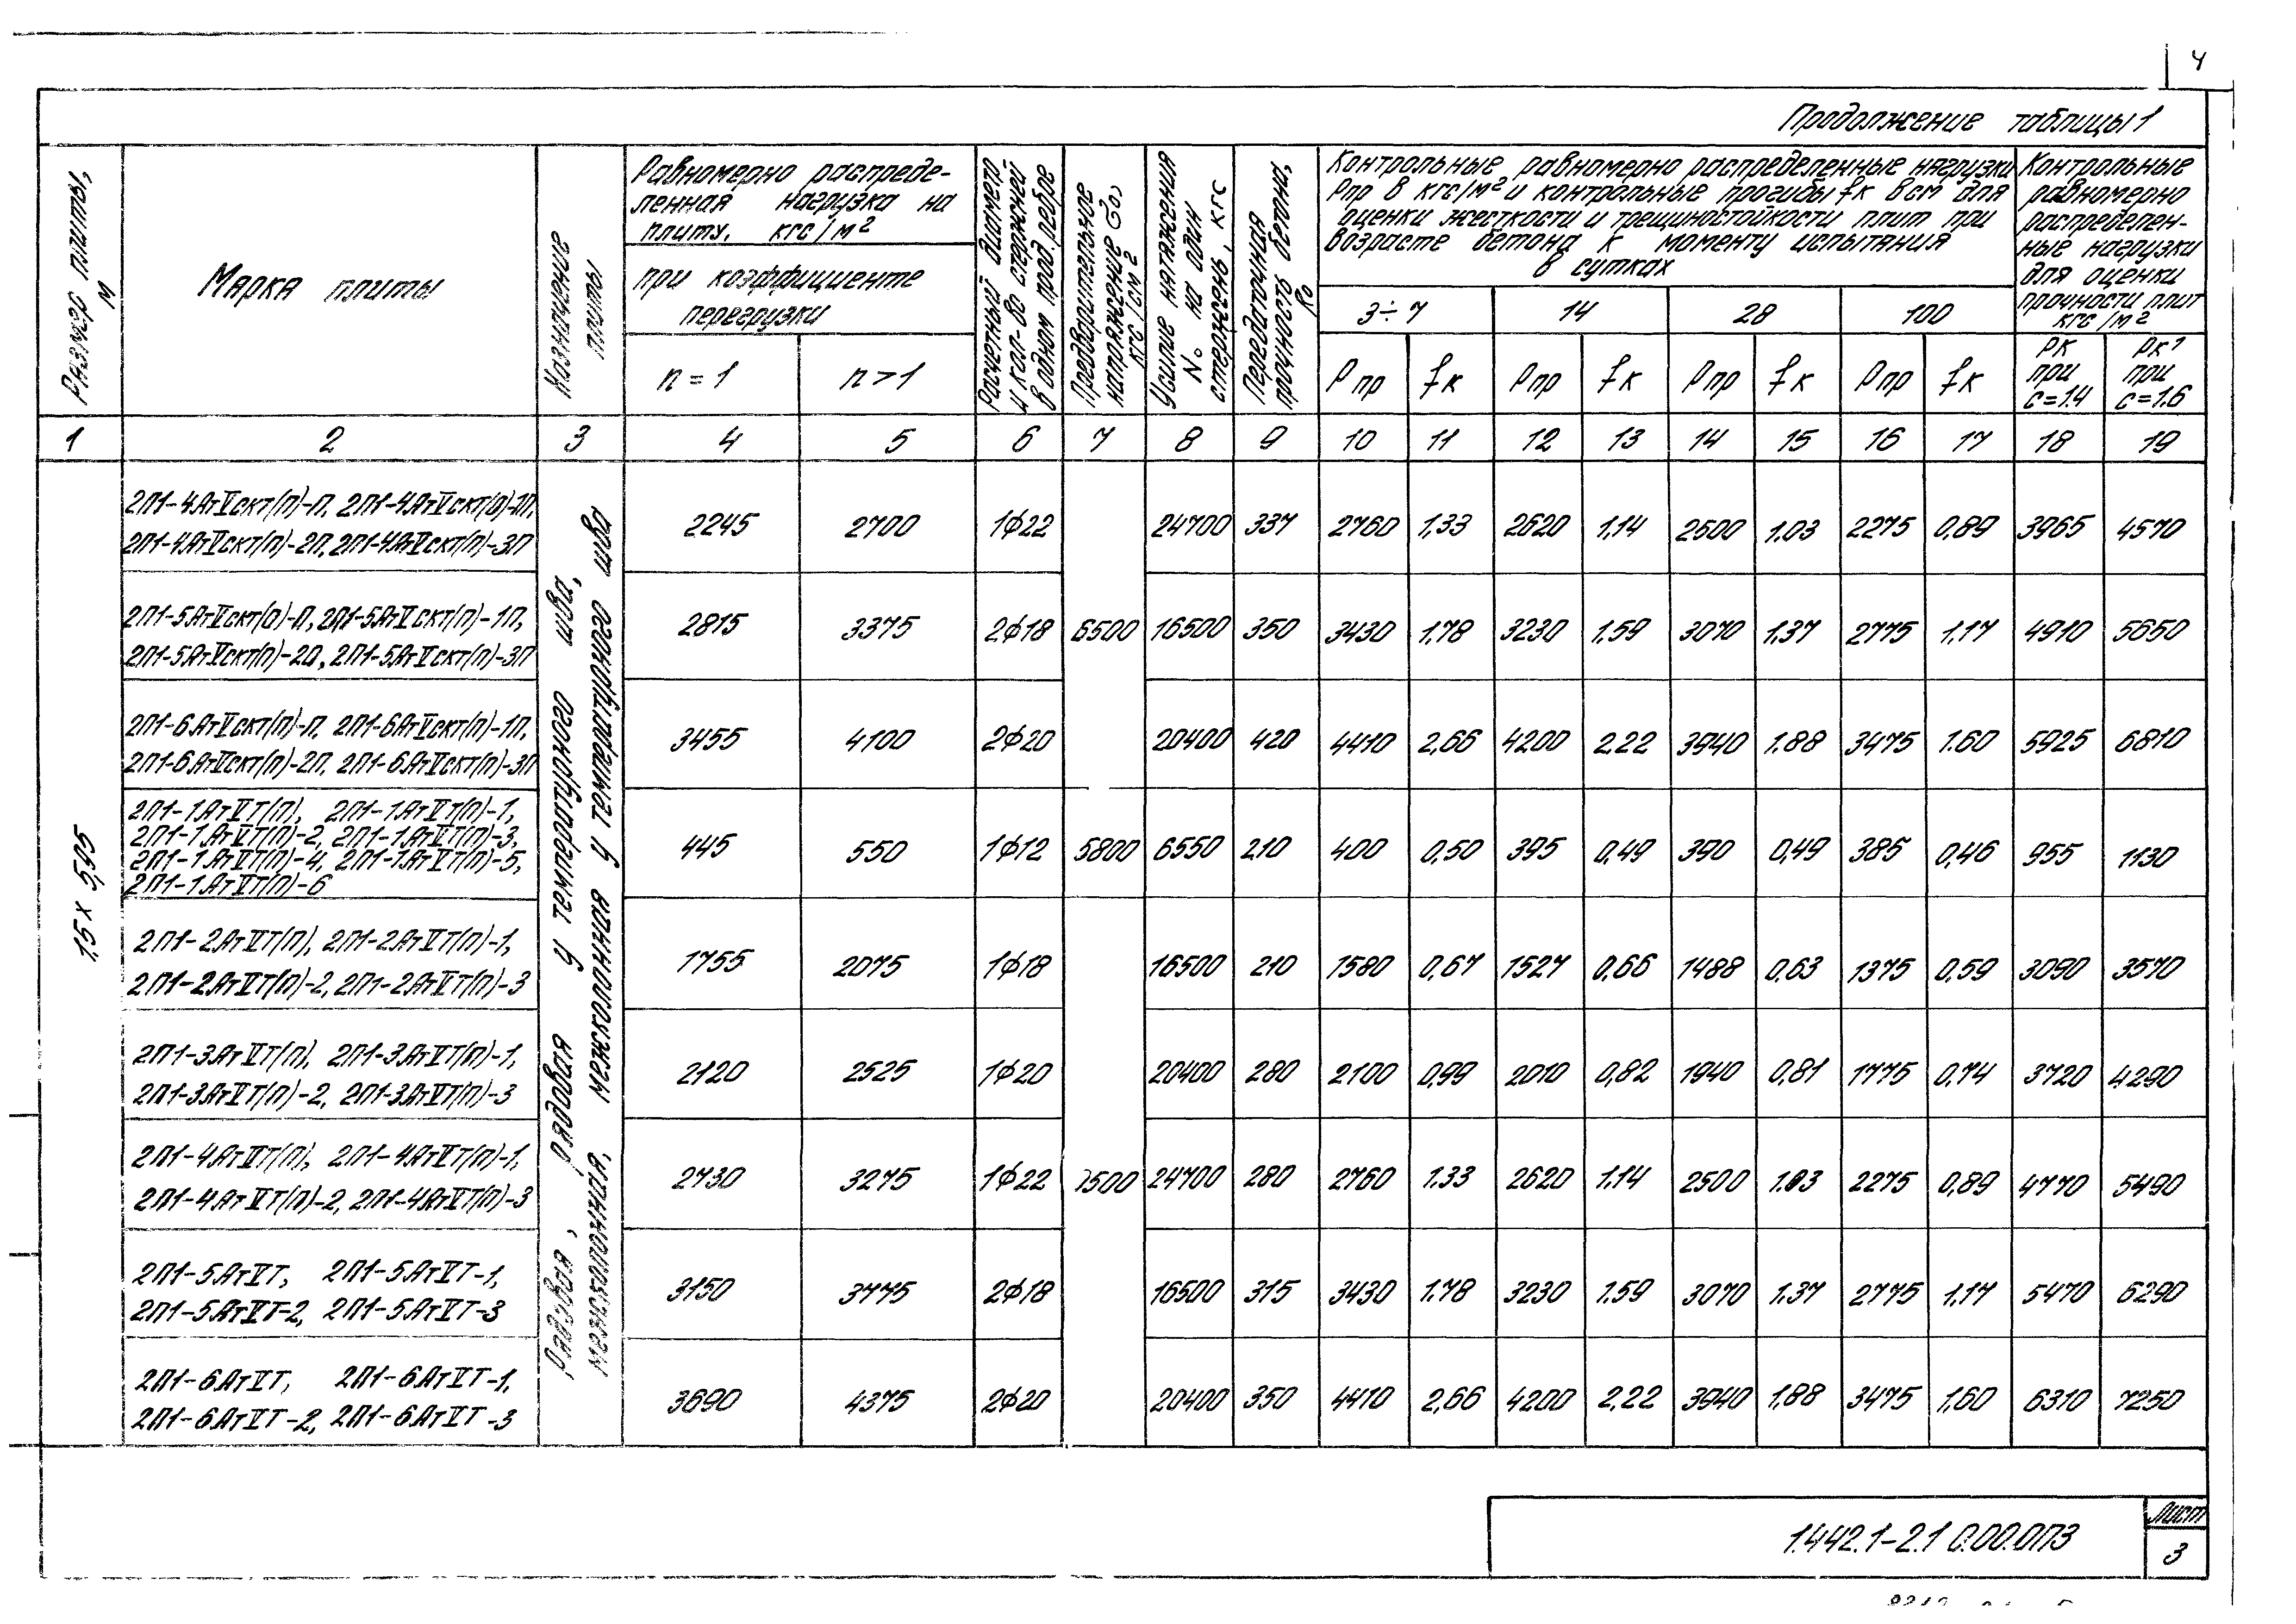 4
Продолжение таблицы 1
Размер плиты, м
Марка плиты
Назначение плиты
Равномерно распреде-
ленная нагрузка на
плиту, кгс/м²
при коэффициенте
перегрузки
n = 1
n > 1
Расчетный диаметр
и кол-во стержней
в одном прод. ребре
Предварительное
напряжение σо,
кгс/см²
Усилие натяжения
No на один
стержень, кгс
Передаточная
прочность бетона,
Ro
Контрольные равномерно распределенные нагрузки
Рпр в кгс/м² и контрольные прогибы fк в см для
оценки жесткости и трещиностойкости плит при
возрасте бетона к моменту испытания
в сутках
3÷7 14 28 100
Рпр fк Рпр fк Рпр fк Рпр fк
Контрольные
равномерно
распределен-
ные нагрузки
для оценки
прочности плит
кгс/м²
Рк при с=1.4
Рк¹ при с=1.6
1 2 3 4 5 6 7 8 9 10 11 12 13 14 15 16 17 18 19
1.5 х 5,95
Рядовая, рядовая у температурного шва,
межколонная, межколонная у температурного шва
2П1-4АтVскт(п)-П, 2П1-4АтVскт(п)-1П,
2П1-4АтVскт(п)-2П, 2П1-4АтVскт(п)-3П
2245 2700 1ф22 24700 337 2760 1,33 2620 1,14 2500 1.03 2275 0,89 3965 4570
2П1-5АтVскт(п)-П, 2П1-5АтVскт(п)-1П,
2П1-5АтVскт(п)-2П, 2П1-5АтVскт(п)-3П
2815 3375 2ф18 6500 16500 350 3430 1,78 3230 1,59 3070 1,37 2775 1,17 4910 5650
2П1-6АтVскт(п)-П, 2П1-6АтVскт(п)-1П,
2П1-6АтVскт(п)-2П, 2П1-6АтVскт(п)-3П
3455 4100 2ф20 20400 420 4410 2,66 4200 2,22 3940 1.88 3475 1.60 5925 6810
2П1-1АтVТ(п), 2П1-1АтVТ(п)-1,
2П1-1АтVТ(п)-2, 2П1-1АтVТ(п)-3,
2П1-1АтVТ(п)-4, 2П1-1АтVТ(п)-5,
2П1-1АтVТ(п)-6
445 550 1ф12 5800 6550 210 400 0,50 395 0,49 390 0,49 385 0,46 955 1130
2П1-2АтVIТ(п), 2П1-2АтVIТ(п)-1,
2П1-2АтVIТ(п)-2, 2П1-2АтVIТ(п)-3
1755 2075 1ф18 16500 210 1580 0,67 1527 0,66 1488 0,63 1375 0,59 3090 3570
2П1-3АтVIТ(п), 2П1-3АтVIТ(п)-1,
2П1-3АтVIТ(п)-2, 2П1-3АтVIТ(п)-3
2120 2525 1ф20 20400 280 2100 0,99 2010 0,82 1940 0,81 1775 0,74 3720 4290
2П1-4АтVIТ(п), 2П1-4АтVIТ(п)-1,
2П1-4АтVIТ(п)-2, 2П1-4АтVIТ(п)-3
2730 3275 1ф22 7500 24700 280 2760 1.33 2620 1.14 2500 1.03 2275 0,89 4770 5490
2П1-5АтVIТ, 2П1-5АтVIТ-1,
2П1-5АтVIТ-2, 2П1-5АтVIТ-3
3150 3775 2ф18 16500 315 3430 1.78 3230 1.59 3070 1.37 2775 1,17 5470 6290
2П1-6АтVIТ, 2П1-6АтVIТ-1,
2П1-6АтVIТ-2, 2П1-6АтVIТ-3
3690 4375 2ф20 20400 350 4410 2,66 4200 2,22 3940 1,88 3475 1,60 6310 7250
1.442.1-2.1 0.00.0ПЗ
Лист
3